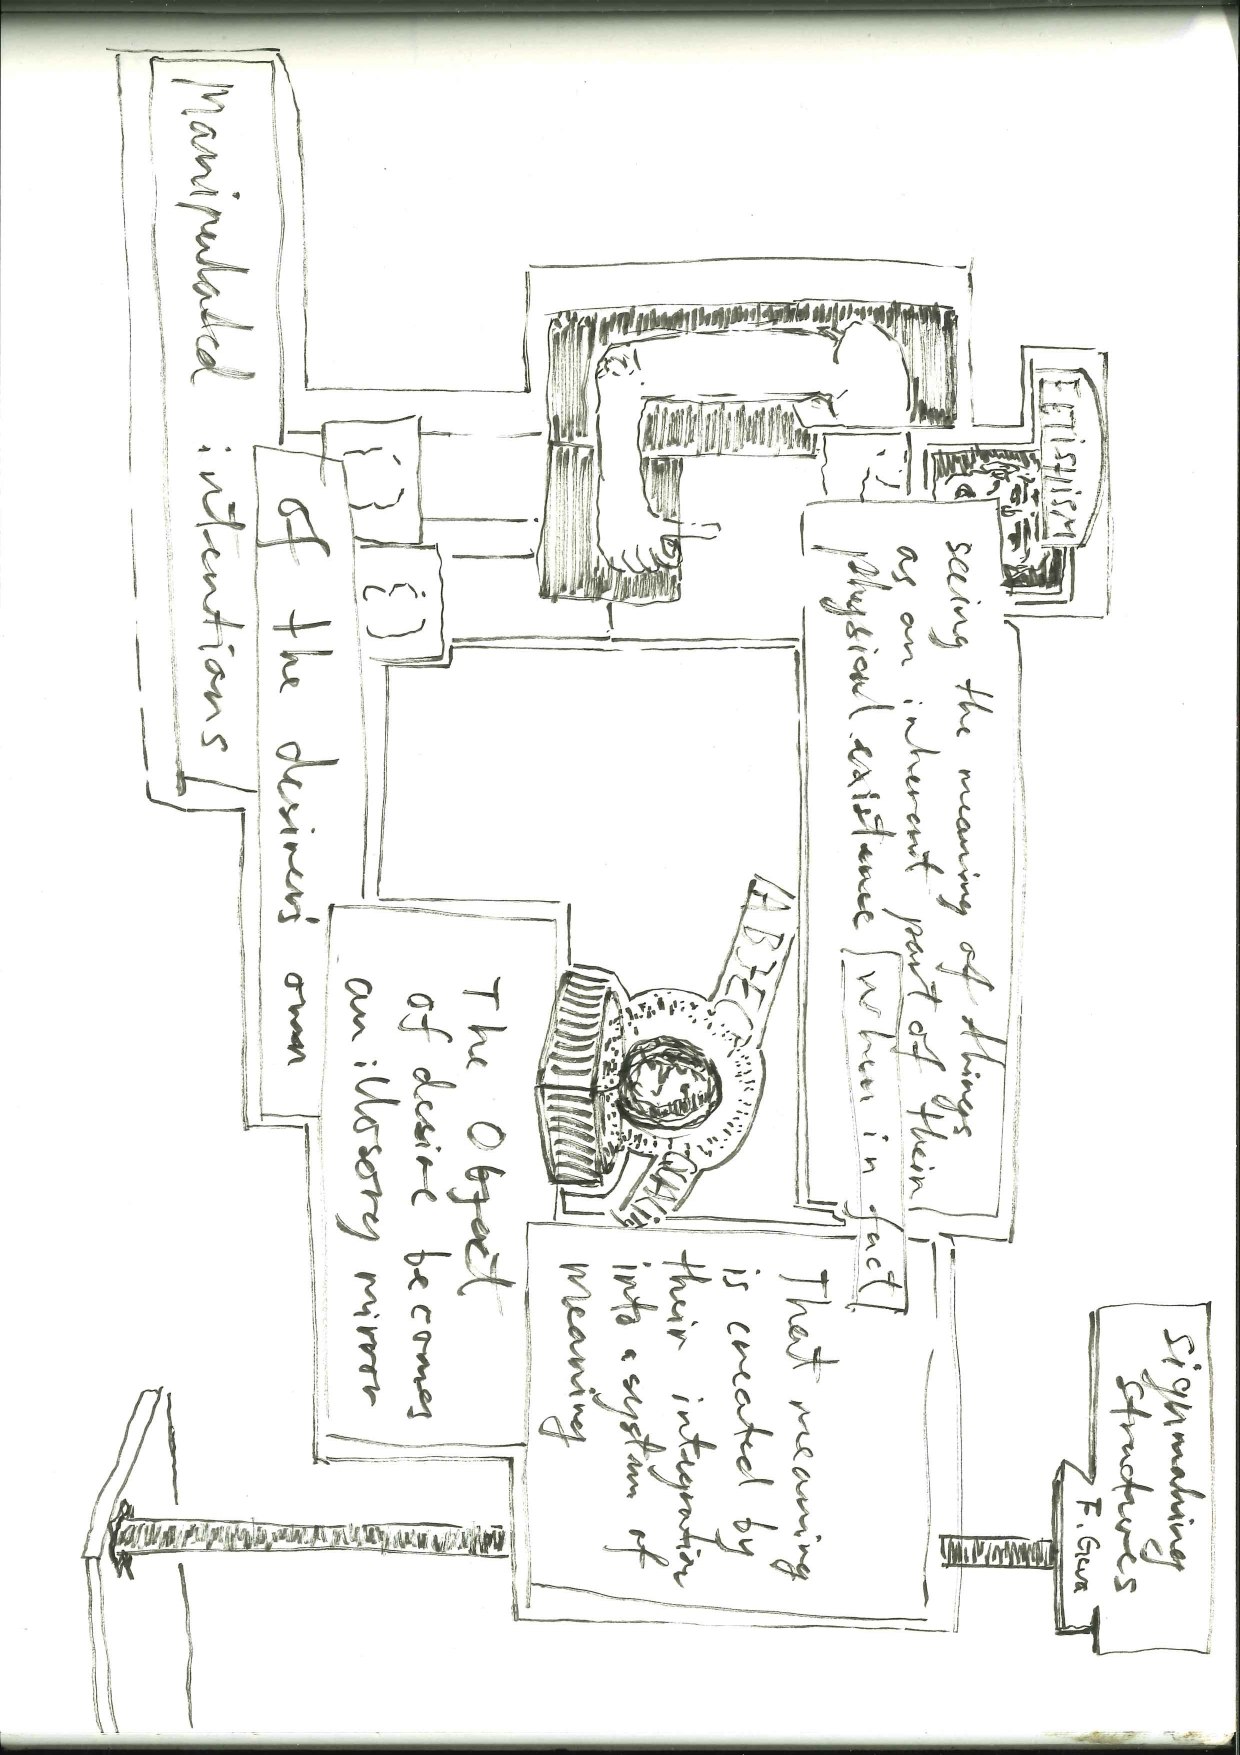 Signmaking
structures
F. Geva
FETISHISM
seeing the meaning of things
as an inherent part of their
physical existence when in fact
That meaning
is created by
their integration
into a system of
meaning
The Object
of desire becomes
an illosory mirror
of the desirers own
Manipulated intentions